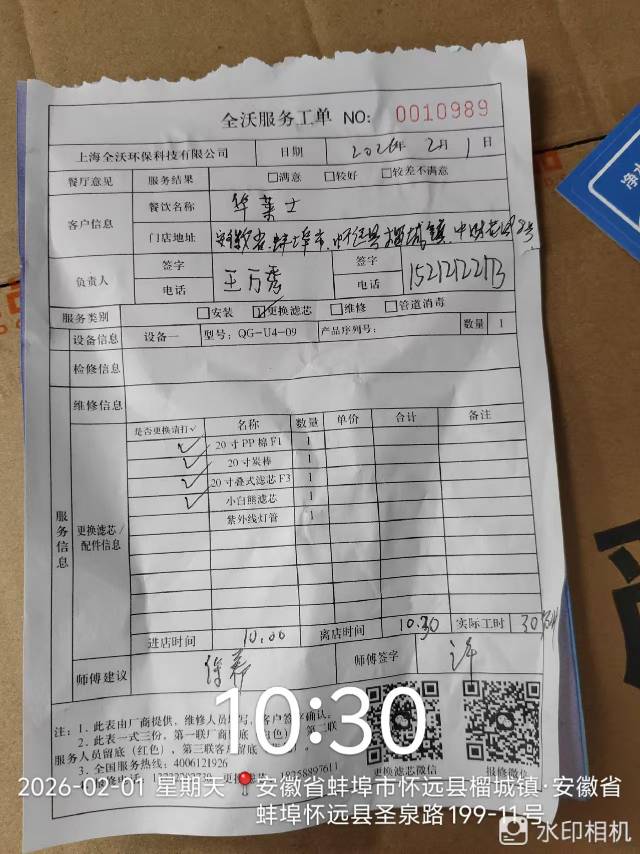 全沃服务工单 NO: 0010989
上海全沃环保科技有限公司 日期 2026年 2月 1日
餐厅意见 服务结果 □满意 □较好 □较差不满意
客户信息 餐饮名称 华莱士
门店地址 安徽省.蚌埠市.怀远县榴城镇.中财花园2号
负责人 签字 王万秀 签字
电话 电话 15212122173
服务类别 □安装 ☑更换滤芯 □维修 □管道消毒
设备信息 设备一 型号: QG-U4-09 产品序列号: 数量 1
检修信息
维修信息
服务信息
更换滤芯/配件信息
是否更换请打√ 名称 数量 单价 合计 备注
√ 20寸PP棉F1 1
√ 20寸炭棒 1
√ 20寸叠式滤芯F3 1
√ 小白熊滤芯 1
紫外线灯管 1
进店时间 10.00 离店时间 10.30 实际工时 30分钟
师傅建议 保养 师傅签字 许
注: 1. 此表由厂商提供, 维修人员填写, 客户签字确认.
2. 此表一式三份. 第一联厂商
服务人员留底 (红色), 第三联客户留底
3. 全国服务热线: 4006121926
18758897611
更换滤芯微信 报修微信
10:30
2026-02-01 星期天 安徽省蚌埠市怀远县榴城镇·安徽省
蚌埠怀远县圣泉路199-11号
水印相机
净水